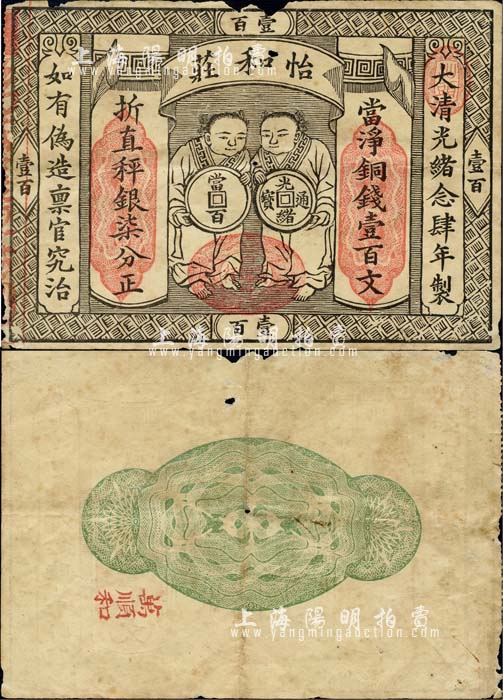 壹百
怡和莊
大清光緒念肆年製
壹百
當淨銅錢壹百文
光緒通寶
當百
折直秤銀柒分正
如有偽造稟官究治
壹百
壹百
上海陽明拍賣
www.yangmingauction.com
上海陽明拍賣
www.yangmingauction.com
萬順和
上海陽明拍賣
www.yangmingauction.com